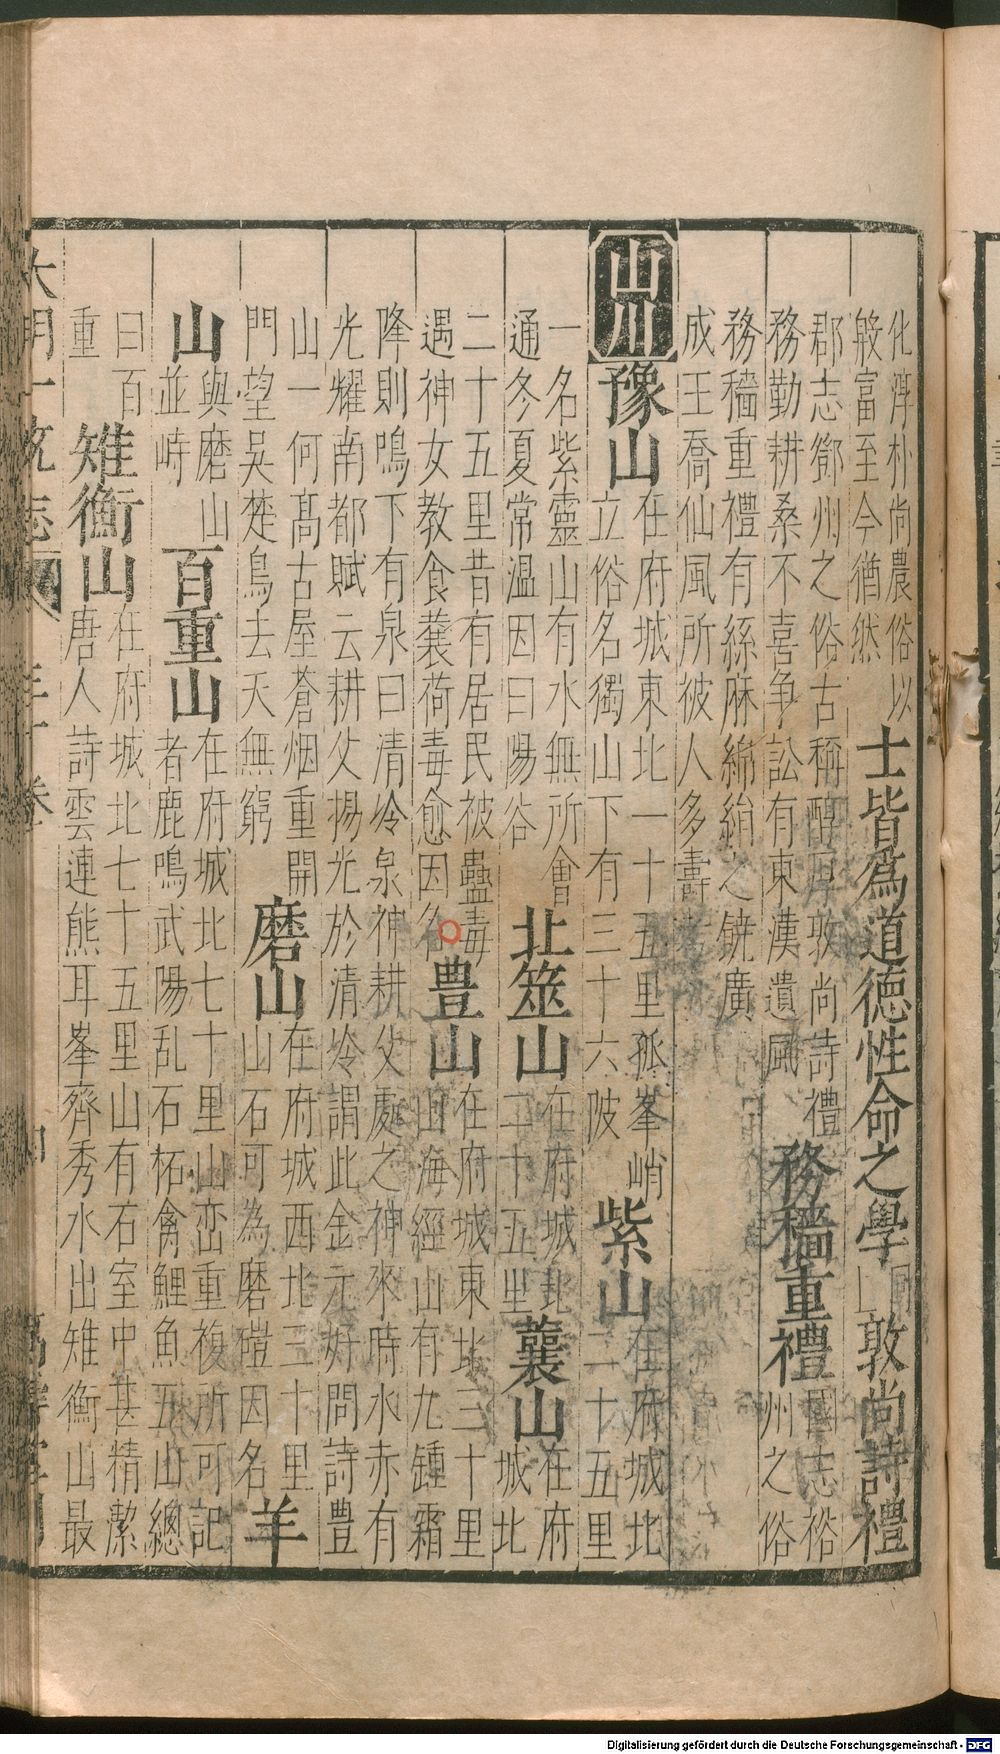 化淳朴尚農俗以
般富至今猶然
士皆爲道德性命之學
同上
敦尚詩禮
郡志鄧州之俗古稱醇厚敦尚詩禮
國志裕
務勤耕桑不喜争訟有東漢遺風
務穡重禮
州之俗
務穡重禮有絲麻綿絹之饒廣
成王喬仙風所被人多壽考
山川
豫山
在府城東北一十五里孤峯峭
立俗名獨山下有三十六陂
紫山
在府城北
二十五里
一名紫靈山有水無所會
通冬夏常温因曰陽谷
北筮山
在府城北
二十五里
蘘山
在府
城北
二十五里昔有居民被蠱毒
遇神女教食蘘荷毒愈因名
豊山
在府城東北三十里
山海經山有九鍾霜
降則鳴下有泉曰清泠泉神耕父處之神來時水赤有
光耀南都賦云耕父揚光於清泠謂此金元好問詩豊
山一何髙古屋蒼烟重開
門望吳楚鳥去天無窮
磨山
在府城西北三十里
山石可為磨磑因名
羊
山
與磨山
並峙
百重山
在府城北七十里山峦重複所可記
者鹿鳴武陽乱石柘禽鯉魚五山總
曰百
重
雉衡山
在府城北七十五里山有石室中甚精潔
唐人詩雲連熊耳峯齊秀水出雉衡山最
大明一統志
三十卷
四
Digitalisierung gefördert durch die Deutsche Forschungsgemeinschaft - DFG